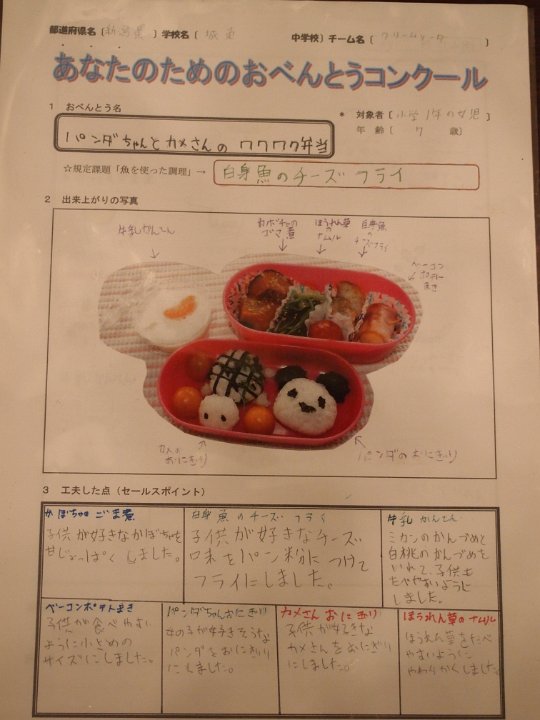 都道府県名〔新潟県〕学校名〔城東 中学校〕チーム名〔クリームソーダー〕
あなたのためのおべんとうコンクール
1 おべんとう名
* 対象者〔小学1年の女児〕
年 齢〔 7 歳〕
パンダちゃんとカメさんのワクワク弁当
☆規定課題「魚を使った調理」→ 白身魚のチーズフライ
2 出来上がりの写真
牛乳かんてん
かぼちゃのごま煮
ほうれん草のナムル
白身魚のチーズフライ
ベーコンポテトまき
カメのおにぎり
パンダのおにぎり
3 工夫した点（セールスポイント）
かぼちゃごま煮
子供が好きなかぼちゃを
甘じょっぱくしました。
白身魚のチーズフライ
子供が好きなチーズ
味をパン粉につけて
フライにしました。
牛乳かんてん
ミカンのかんづめと
白桃のかんづめを
いれて、子供も
たべやすいように
しました。
ベーコンポテトまき
子供が食べやすい
ように小さめの
サイズにしました。
パンダちゃんおにぎり
女の子が好きそうな
パンダをおにぎり
にしました。
カメさんおにぎり
子供が好きな
カメさんをおにぎり
にしました。
ほうれん草のナムル
ほうれん草をたべ
やすいように
やわらかくしました。